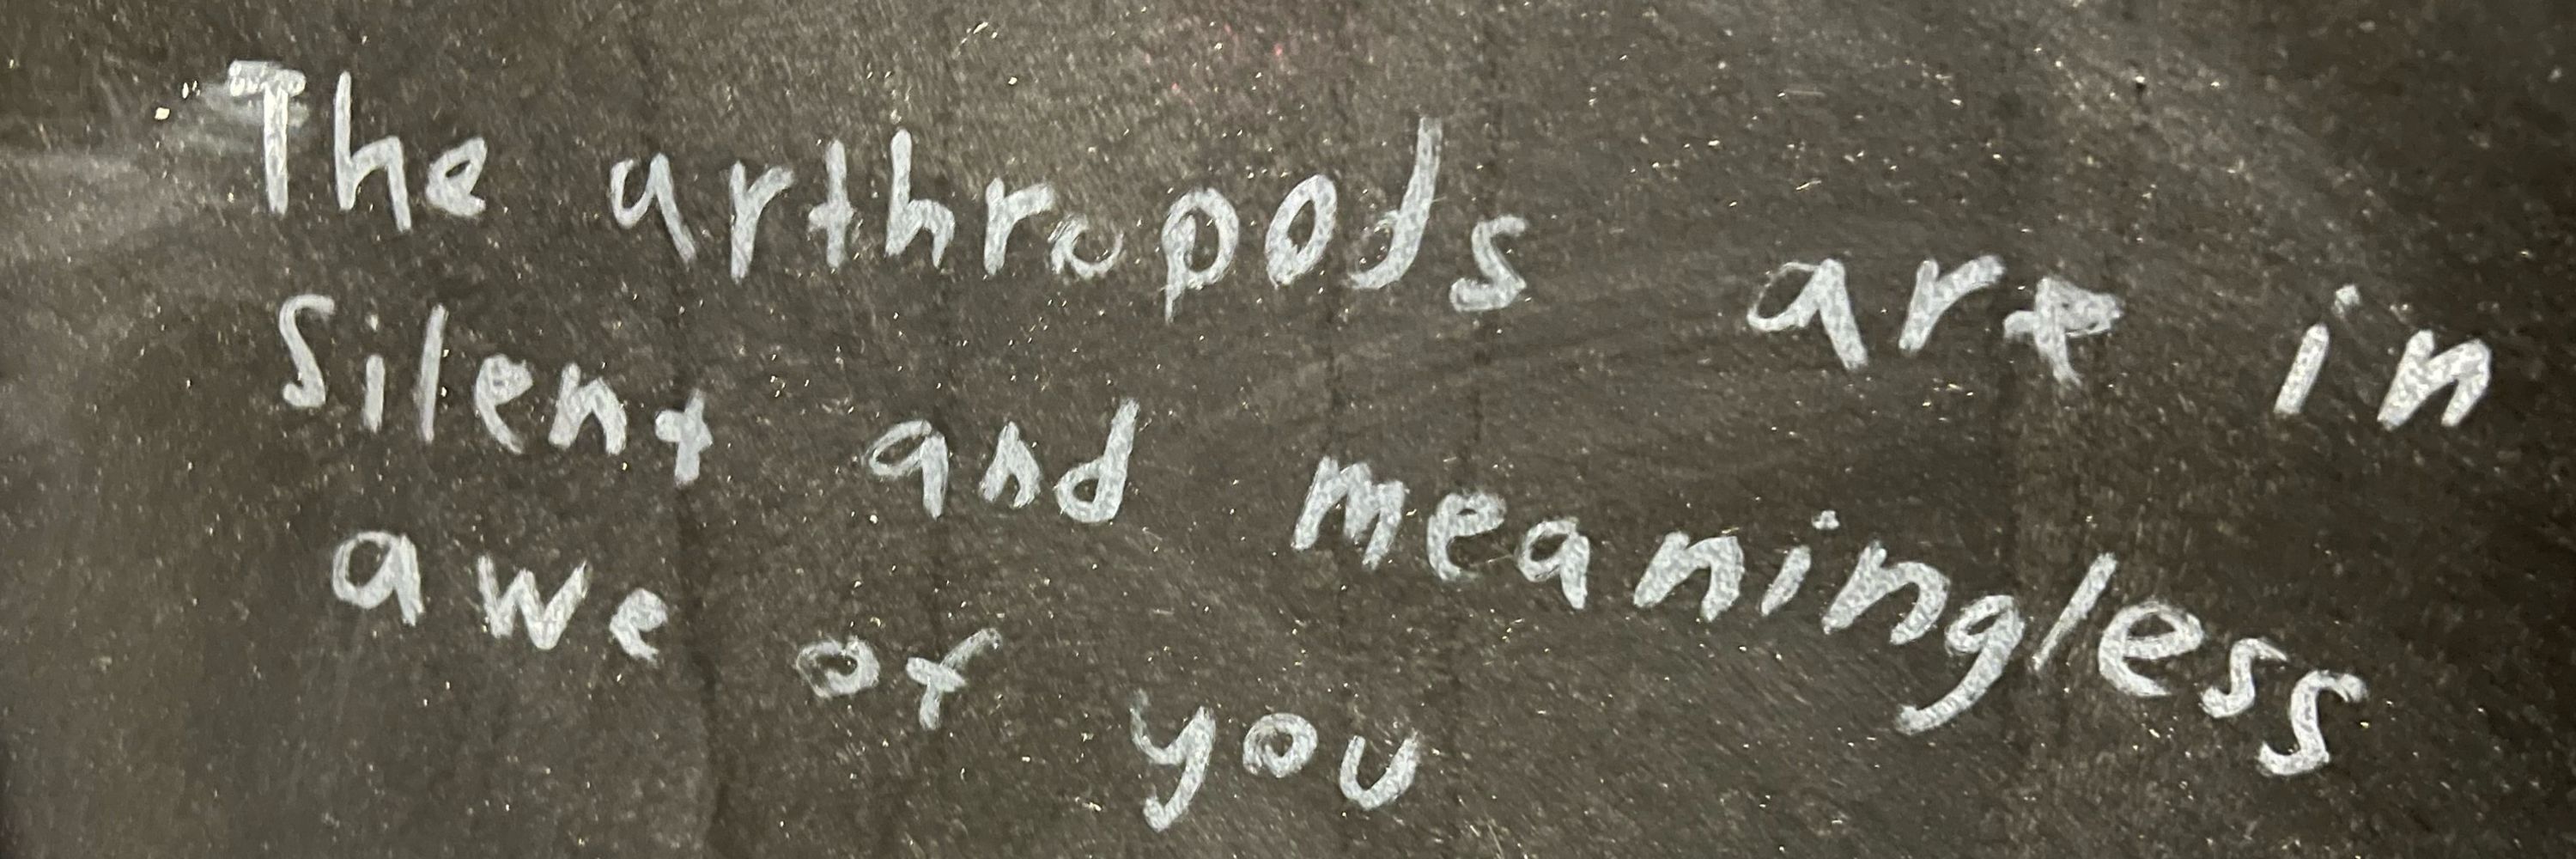 The arthropods are in
Silent and meaningless
awe of you